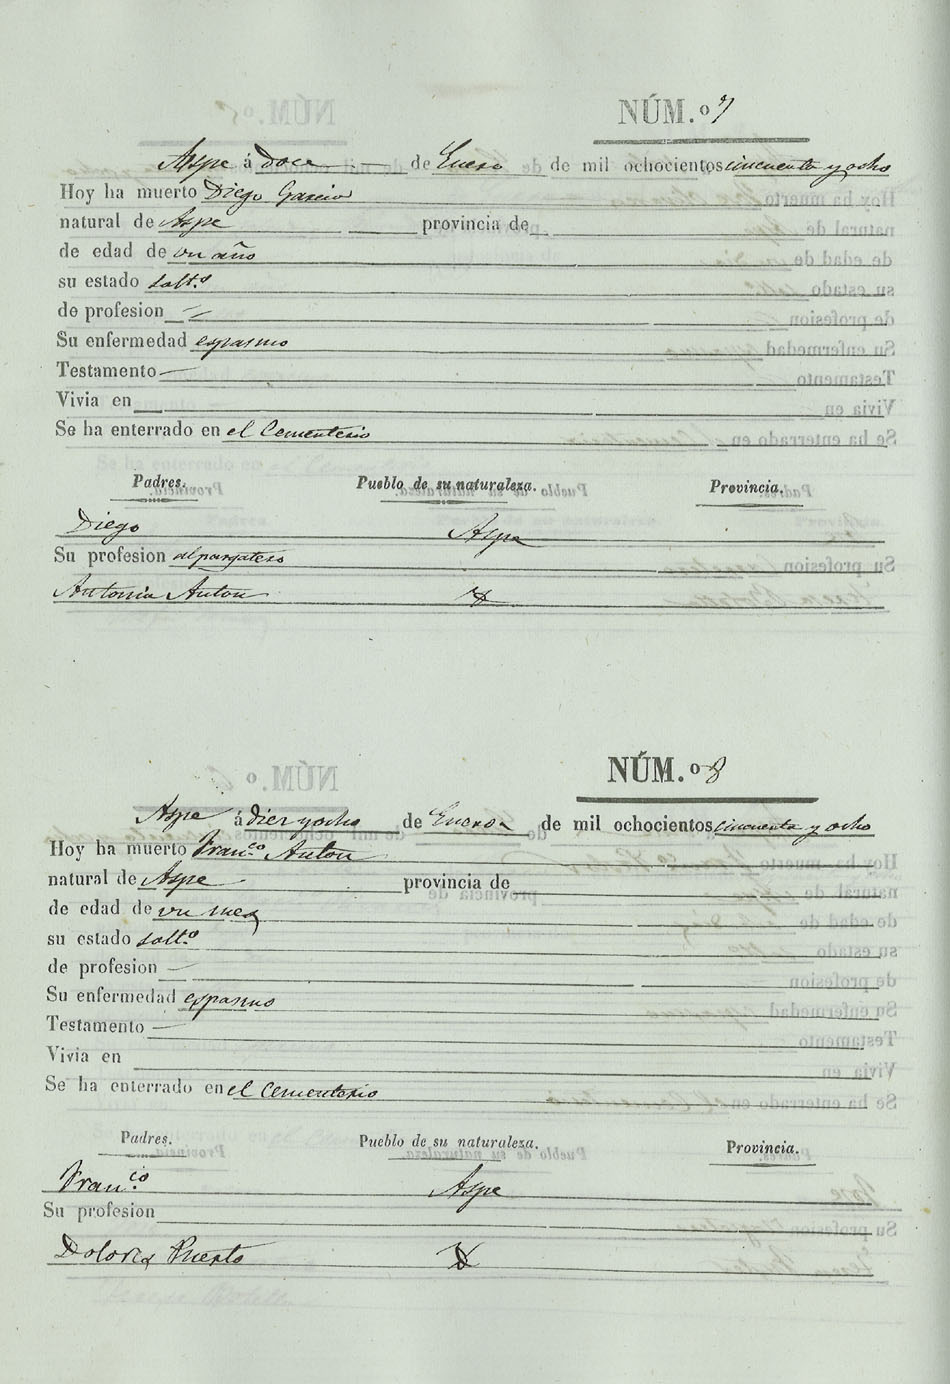 NÚM.º 7
Aspe á doce de Enero de mil ochocientos cincuenta y ocho
Hoy ha muerto Diego Garcia
natural de Aspe provincia de
de edad de un año
su estado solt.º
de profesion
Su enfermedad espasmo
Testamento
Vivia en
Se ha enterrado en el Cementerio
Padres. Pueblo de su naturaleza. Provincia.
Diego Aspe
Su profesion alpargatero
Antonia Anton
NÚM.º 8
Aspe á diez y ocho de Enero de mil ochocientos cincuenta y ocho
Hoy ha muerto Fran.co Anton
natural de Aspe provincia de
de edad de un mes
su estado solt.º
de profesion
Su enfermedad espasmo
Testamento
Vivia en
Se ha enterrado en el Cementerio
Padres. Pueblo de su naturaleza. Provincia.
Fran.co Aspe
Su profesion
Dolores Puerto